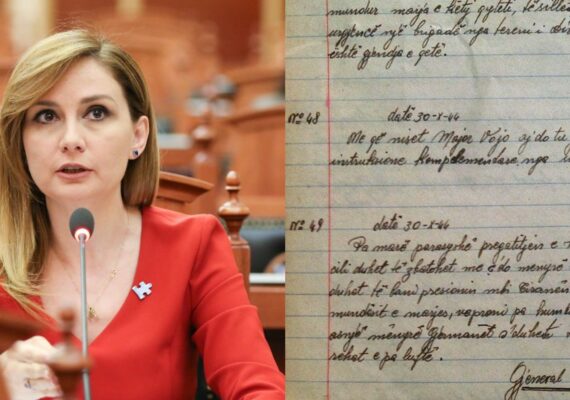 mundur marja e këtij qyteti, të sillet
urgjencë një brigadë nga tereni i
është gjendja e qetë.
Nr 48 datë 30-X-44
Me që niset Major Vojo aj do tu
instruksione komplementare nga
Nr. 49 datë 30-X-44
Pa marë parasyshë pregatitjen e
cili duhet të zbatohet me ç do mënyrë
duhet të bani presionin mbi Tiranën
mundësit e marjes, veproni pa humb
asnjë mënyrë Gjermanët s'duhet
rehat e pa luftë.
General